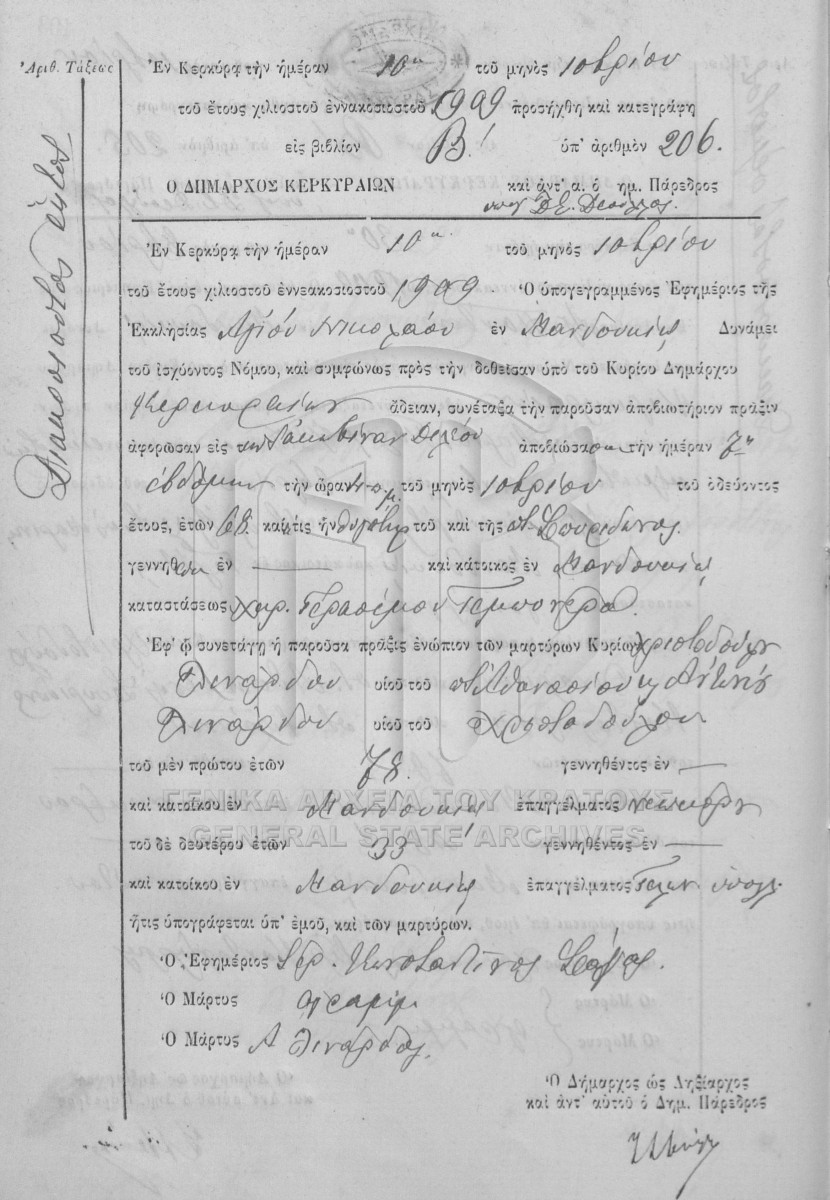 Ἀριθ. Τάξεως
Διακόσιοστὸς ἕκτος
Ἐν Κερκύρᾳ τὴν ἡμέραν 10ην τοῦ μηνὸς 10βρίου
τοῦ ἔτους χιλιοστοῦ ἐννακοσιοστοῦ 1909 προσήχθη καὶ κατεγράφη
εἰς βιβλίον Β! ὑπ' ἀριθμὸν 206.
Ο ΔΗΜΑΡΧΟΣ ΚΕΡΚΥΡΑΙΩΝ καὶ ἀντ' α. ὁ δημ. Πάρεδρος
Ἐν Κερκύρᾳ τὴν ἡμέραν 10ην τοῦ μηνὸς 10βρίου
τοῦ ἔτους χιλιοστοῦ ἐννεακοσιοστοῦ 1909 Ὁ ὑπογεγραμμένος Ἐφημέριος τῆς
Ἐκκλησίας Ἁγίου Νικολάου ἐν Μανδουκίῳ Δυνάμει
τοῦ ἰσχύοντος Νόμου, καὶ συμφώνως πρὸς τὴν δοθεῖσαν ὑπὸ τοῦ Κυρίου Δημάρχου
Κερκυραίων ἄδειαν, συνέταξα τὴν παροῦσαν ἀποβιωτήριον πρᾶξιν
ἀφορῶσαν εἰς τὴν ἀποβιώσασαν τὴν ἡμέραν 7ην
ἑβδόμην τὴν ὥραν τοῦ μηνὸς 10βρίου τοῦ ὁδεύοντος
ἔτους, ἐτῶν 68 καὶ ἥτις ἦν θυγάτηρ τοῦ καὶ τῆς π. Σπυρίδωνος
γεννηθεῖσα ἐν — καὶ κάτοικος ἐν Μανδουκίῳ
καταστάσεως χηρ. Γερασίμου Τεμπονέρα.
Ἐφ' ᾧ συνετάγη ἡ παροῦσα πρᾶξις ἐνώπιον τῶν μαρτύρων Κυρίων Χριστοδούλου
Λινάρδου υἱοῦ τοῦ π. Ἀθανασίου κ Ἀντώνη
Λινάρδου υἱοῦ τοῦ Χριστοδούλου
τοῦ μὲν πρώτου ἐτῶν 78 γεννηθέντος ἐν —
καὶ κατοίκου ἐν Μανδουκίῳ ἐπαγγέλματος νεωκόρου
ΓΕΝΙΚΑ ΑΡΧΕΙΑ ΤΟΥ ΚΡΑΤΟΥΣ
GENERAL STATE ARCHIVES
τοῦ δὲ δευτέρου ἐτῶν 33 γεννηθέντος ἐν —
καὶ κατοίκου ἐν Μανδουκίῳ ἐπαγγέλματος Τελων. ὑπαλλ.
ἥτις ὑπογράφεται ὑπ' ἐμοῦ, καὶ τῶν μαρτύρων.
Ὁ Ἐφημέριος Ἱερ. Κωνσταντῖνος
Ὁ Μάρτυς ἀγράμμ.
Ὁ Μάρτυς Α Λινάρδος
Ὁ Δήμαρχος ὡς Ληξίαρχος
καὶ ἀντ' αὐτοῦ ὁ Δημ. Πάρεδρος